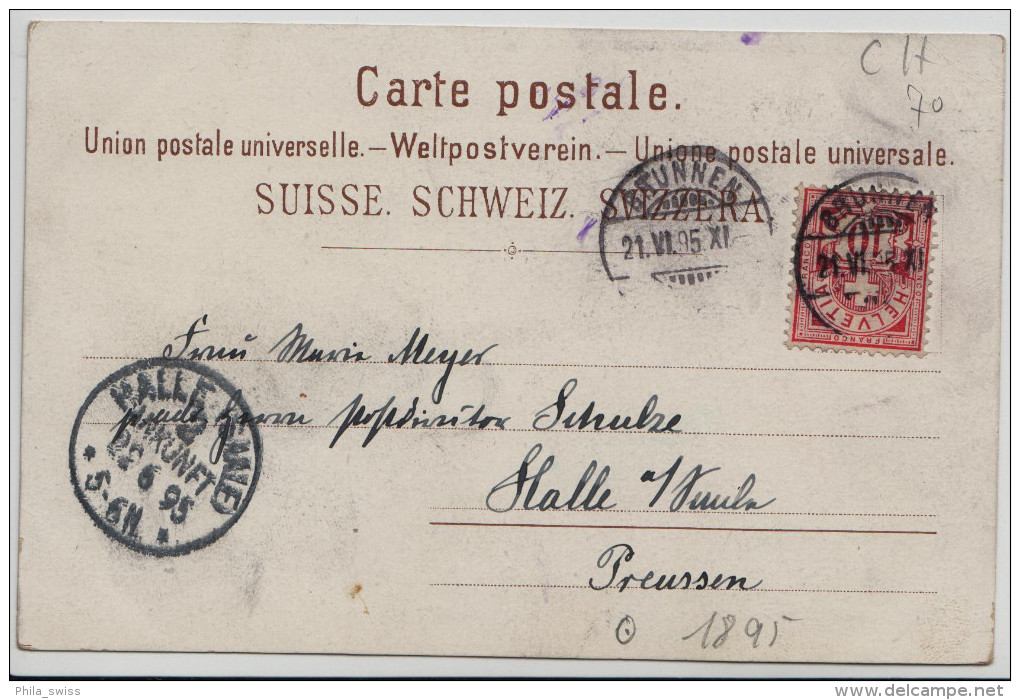 C H
70
Carte postale.
Union postale universelle.–Weltpostverein.–Unione postale universale.
SUISSE. SCHWEIZ. SVIZZERA
BRUNNEN
21.VI.95.XI
BRUNNEN
21.VI.95 XI
10
HELVETIA
FRANCO
Frau Marie Meyer
Herrn Postdirektor Schulze
Halle a/Saale
Preussen
HALLE (SAALE)
ANKUNFT
6 95
5-6N
1895
Phila_swiss
www.delcampe.net